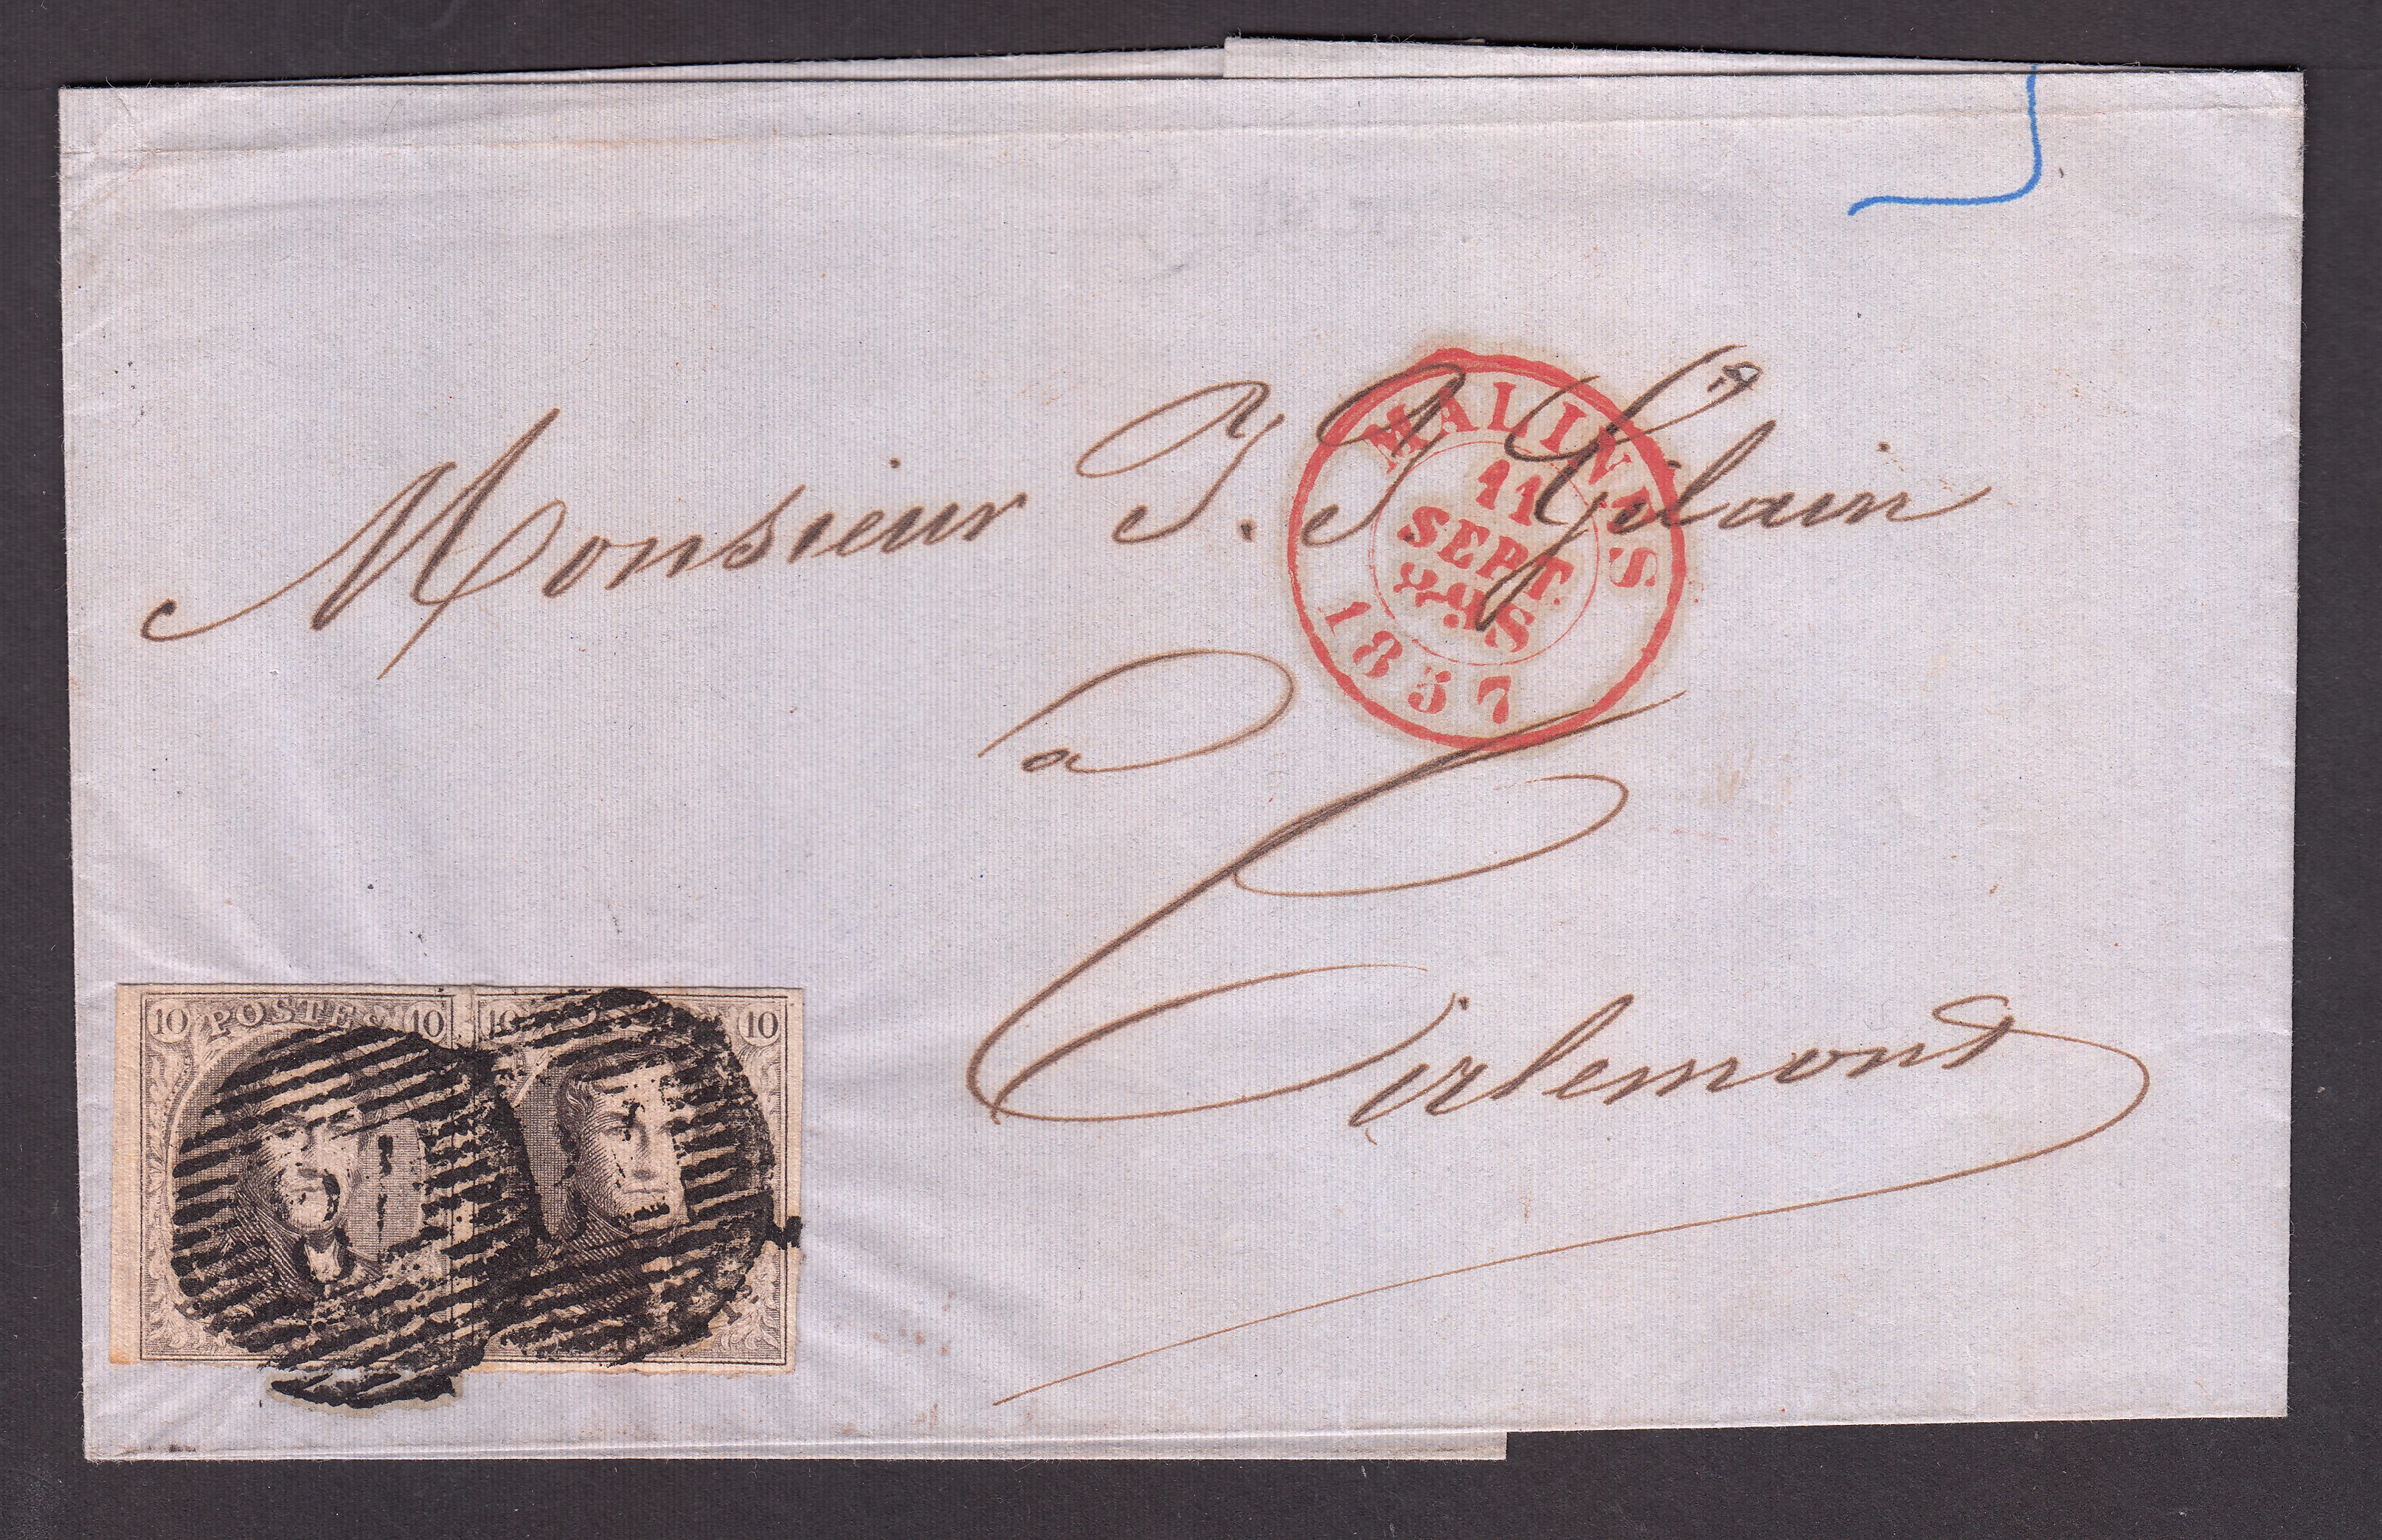 MALINES
11
SEPT.
2-9S
1857
Monsieur J. J. Gilain
a
Tirlemont
10 POSTES 10
10 10